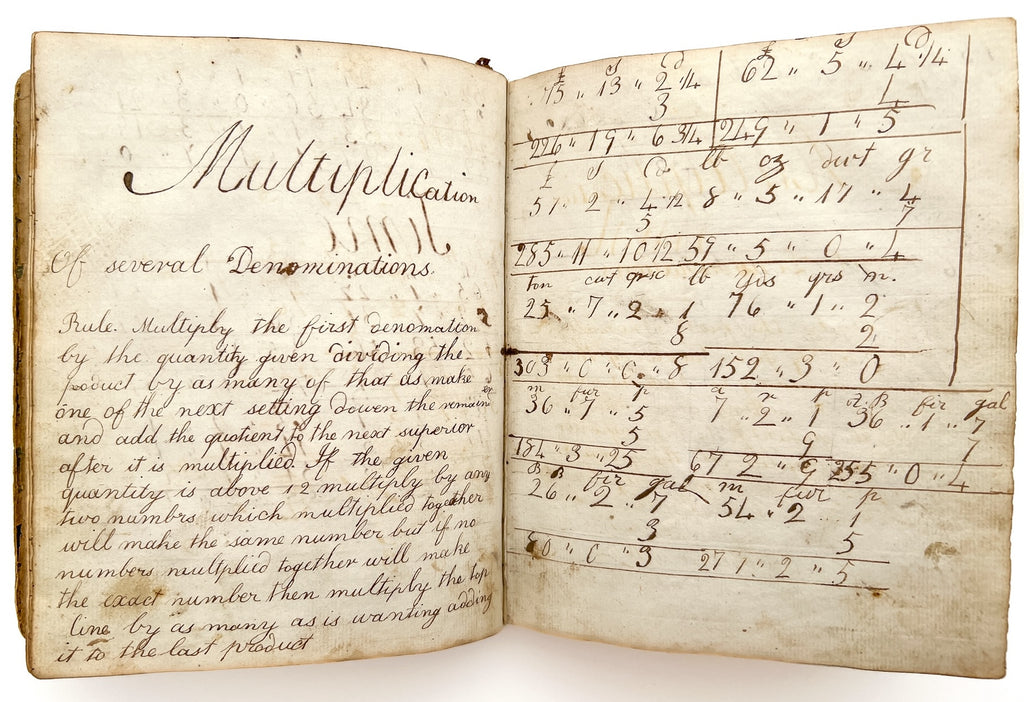 Multiplication
Of several Denominations.
Rule. Multiply the first denomation
by the quantity given dividing the
product by as many of that as make
one of the next setting dowen the remaind
er
and add the quotient to the next superior
after it is multiplied If the given
quantity is above 12 multiply by any
two numbrs which multiplied together
will make the same number but if no
numbers multplied together will make
the exact number then multiply the top
line by as many as is wanting adding
it to the last product
£ s d
75 " 13 " 2 1/4
3
226 " 19 " 6 3/4
£ s d
62 " 5 " 4 1/4
4
249 " 1 " 5
£ s d
57 " 2 " 4 1/2
5
285 " 11 " 10 1/2
lb oz dwt gr
8 " 5 " 17 " 4
7
59 " 5 " 0 " 4
ton cwt qrs lb
25 " 7 " 2 " 1
8
303 " 0 " 0 " 8
yds qrs n.
76 " 1 " 2
2
152 " 3 " 0
m fur p
36 " 7 " 5
5
184 " 3 " 25
a r p
7 " 2 " 1
9
67 2 " 9
B fir gal
36 " 1 " 7
7
255 " 0 " 4
B B fir gal
26 " 2 " 7
3
80 " 0 " 3
m fur p
54 " 2 1
5
271 " 2 " 5